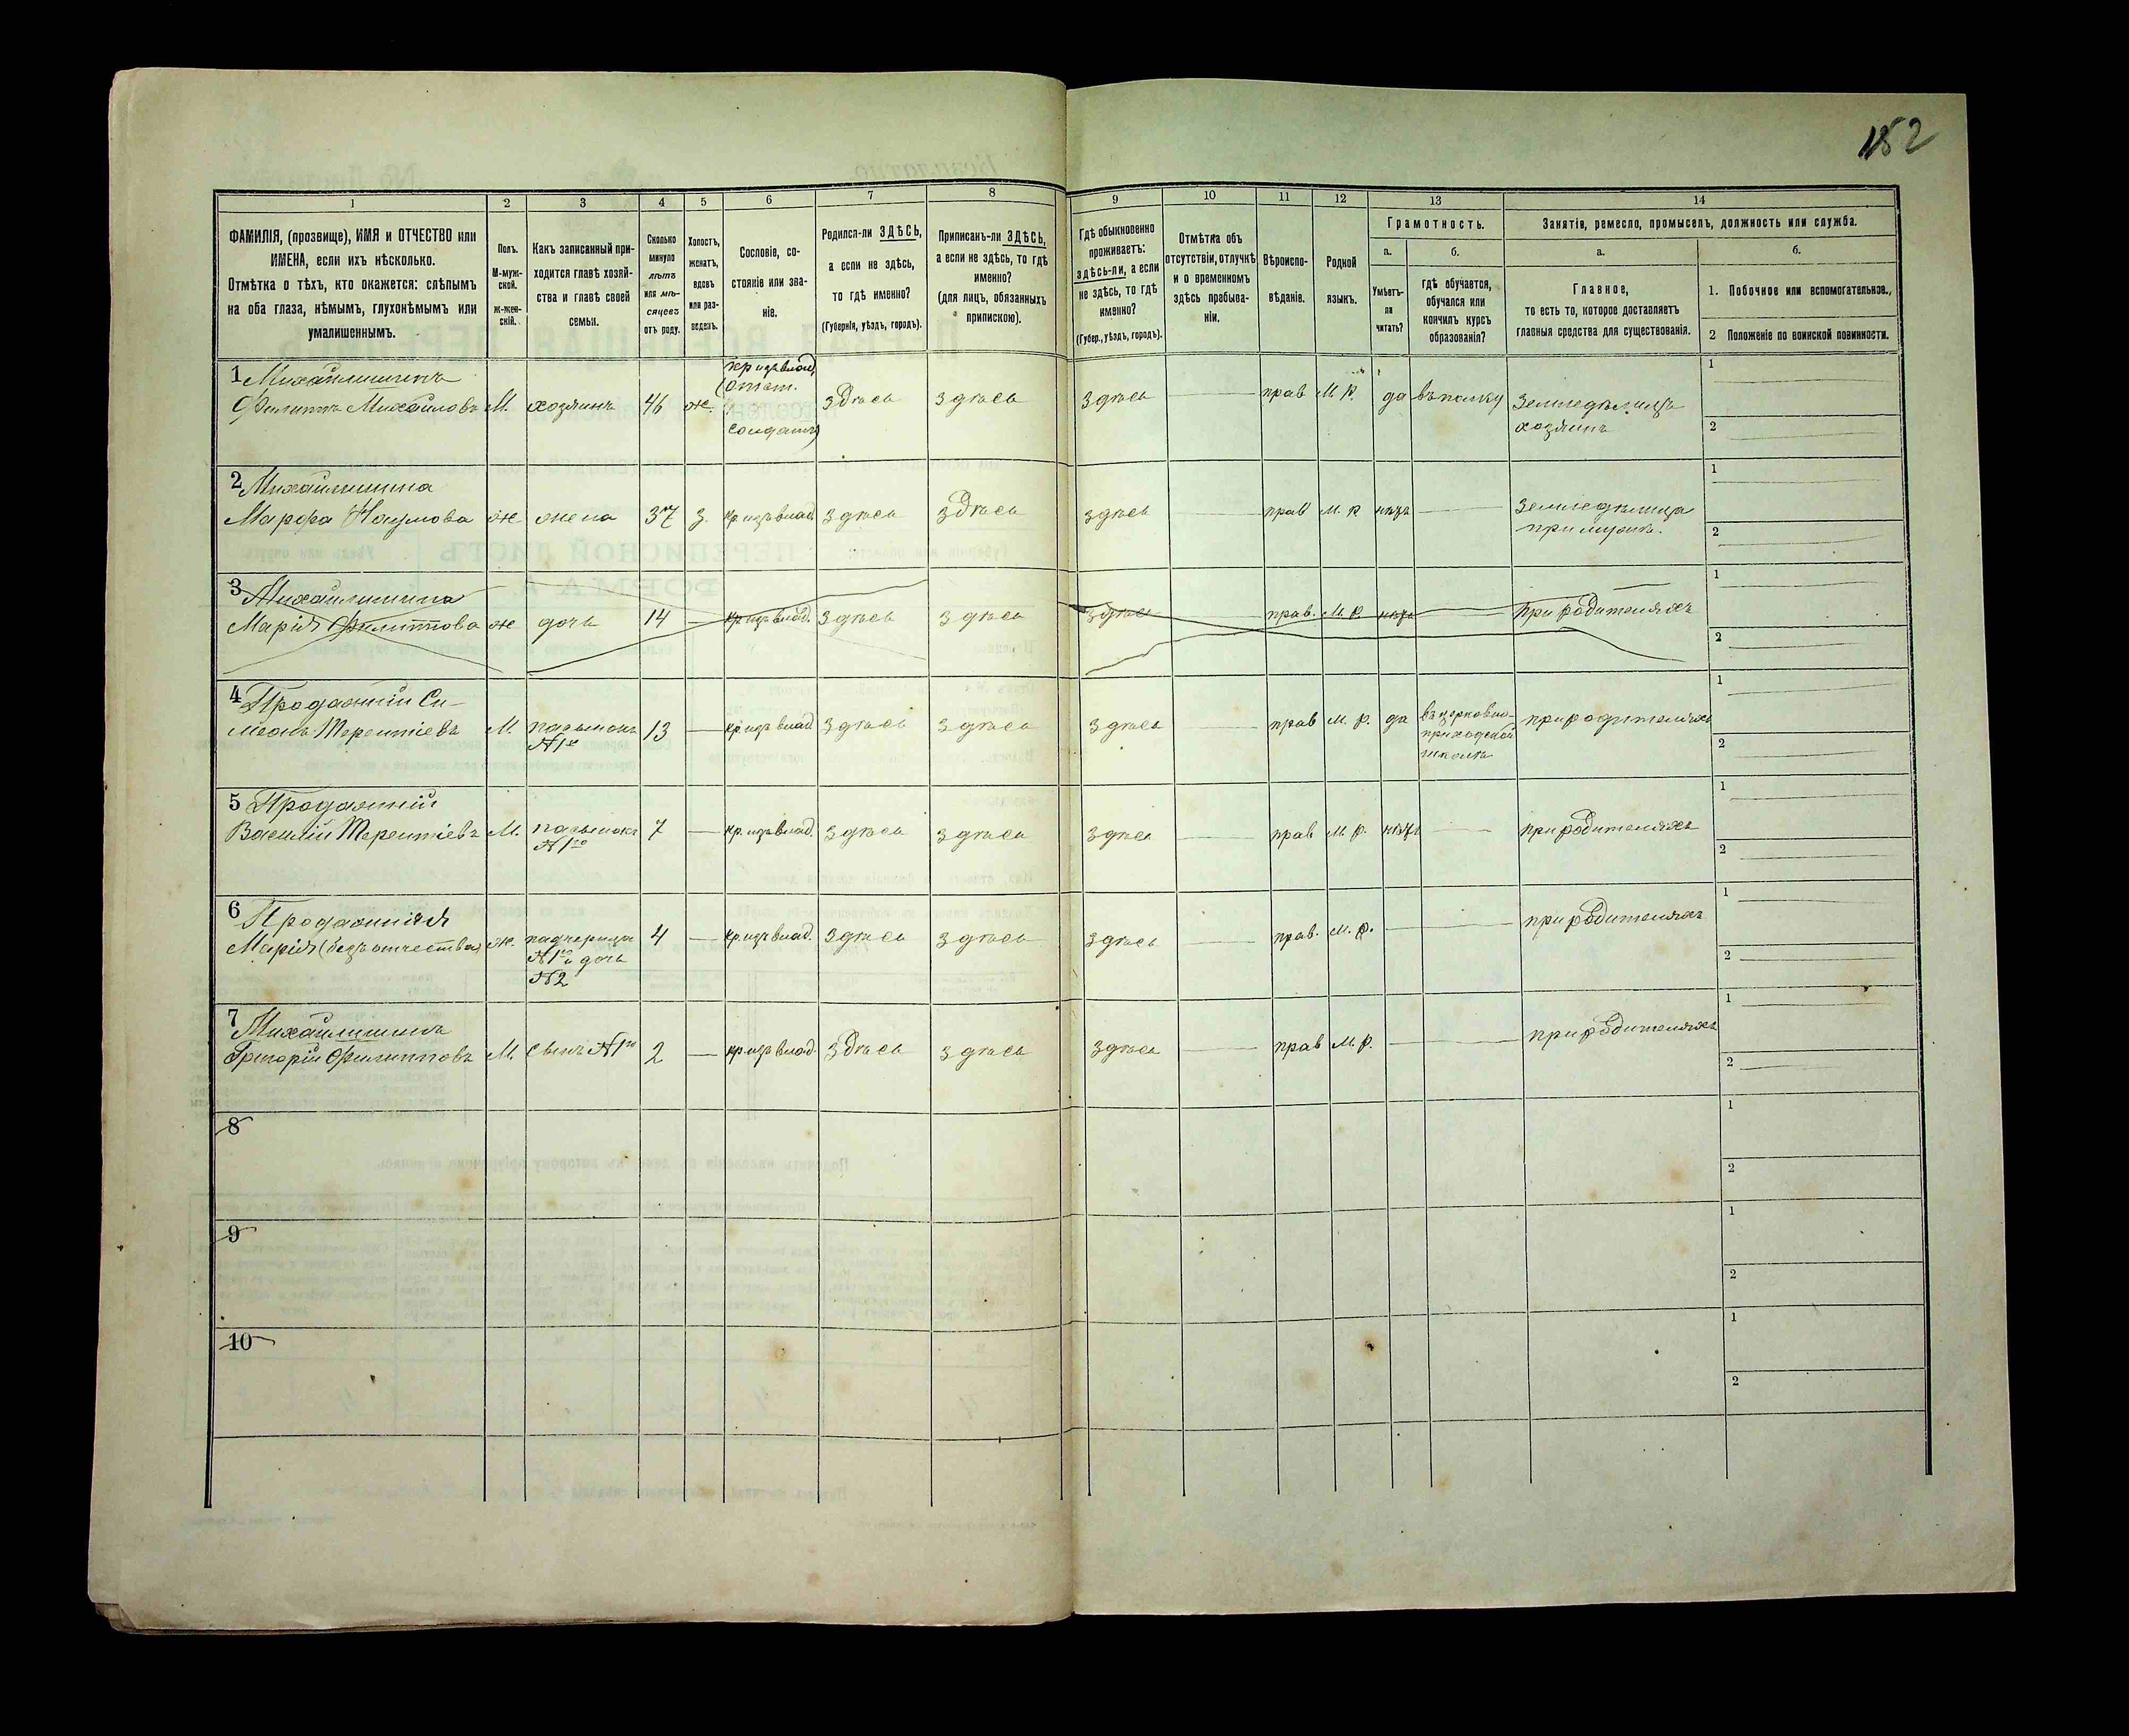 152
1 2 3 4 5 6 7 8 9 10 11 12 13 14
ФАМИЛІЯ, (прозвище), ИМЯ и ОТЧЕСТВО или
ИМЕНА, если ихъ нѣсколько.
Отмѣтка о тѣхъ, кто окажется: слѣпымъ
на оба глаза, нѣмымъ, глухонѣмымъ или
умалишеннымъ.
Полъ.
М-муж-
ской.
Ж-жен-
скій.
Какъ записанный при-
ходится главѣ хозяй-
ства и главѣ своей
семьи.
Сколько
минуло
лѣтъ
или мѣ-
сяцевъ
отъ роду.
Холостъ,
женатъ,
вдовъ
или раз-
веденъ.
Сословіе, со-
стояніе или зва-
ніе.
Родился-ли ЗДѢСЬ,
а если не здѣсь,
то гдѣ именно?
(Губернія, уѣздъ, городъ).
Приписанъ-ли ЗДѢСЬ,
а если не здѣсь, то гдѣ
именно?
(для лицъ, обязанныхъ
припискою).
Гдѣ обыкновенно
проживаетъ:
здѣсь-ли, а если
не здѣсь, то гдѣ
именно?
(Губер., уѣздъ, городъ).
Отмѣтка объ
отсутствіи, отлучкѣ
и о временномъ
здѣсь пребыва-
ніи.
Вѣроиспо-
вѣданіе.
Родной
языкъ.
Грамотность.
а.
Умѣетъ-
ли
читать?
б.
гдѣ обучается,
обучался или
кончилъ курсъ
образованія?
Занятіе, ремесло, промыселъ, должность или служба.
а.
Главное,
то есть то, которое доставляетъ
главныя средства для существованія.
б.
1. Побочное или вспомогательное.,
2 Положеніе по воинской повинности.
1 Михайлишинъ
Филиппъ Михайловъ М. хозяинъ 46 ж.
кр изъ влад.
(отст.
солдатъ)
здѣсь здѣсь здѣсь прав М. р. да въ полку
Земледѣлецъ
хозяинъ
1
2
2 Михайлишина
Марфа Наумова ж жена 37 з. кр. изъ влад здѣсь здѣсь здѣсь прав М. р нѣтъ
Земледѣлица
при мужѣ.
1
2
3 Михайлишина
Марія Филиппова ж дочь 14 кр изъ влад. здѣсь здѣсь здѣсь прав. М. р. нѣтъ при родителяхъ
1
2
4 Продажній Си-
меонъ Терентіевъ М. пасынокъ
№1го
13 кр изъ влад здѣсь здѣсь здѣсь прав М. р. да
въ церковно-
приходской
школѣ
при родителяхъ
1
2
5 Продажній
Василій Терентіевъ М. пасынокъ
№1го
7 кр. изъ влад здѣсь здѣсь здѣсь прав М. р. нѣтъ при родителяхъ
1
2
6 Продажняя
Марія (безъ отчества) ж. падчерица
№1го и дочь
№2
4 кр. изъ влад. здѣсь здѣсь здѣсь прав. М. р. при родителяхъ
1
2
7 Михайлишинъ
Григорій Филипповъ М. сынъ №1го 2 кр. изъ влад. здѣсь здѣсь здѣсь прав М. р. при родителяхъ
1
2
8
1
2
9
1
2
10
1
2